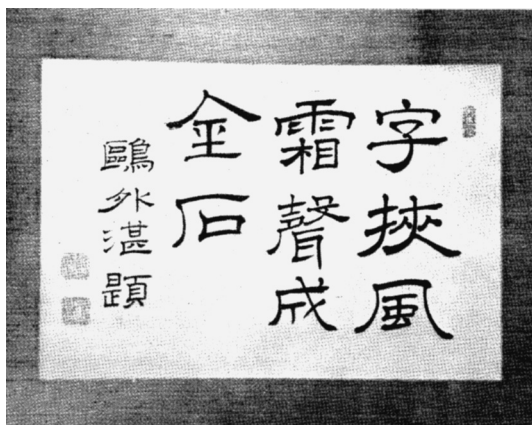 字挾風
霜聲成
金石
鷗外湛題